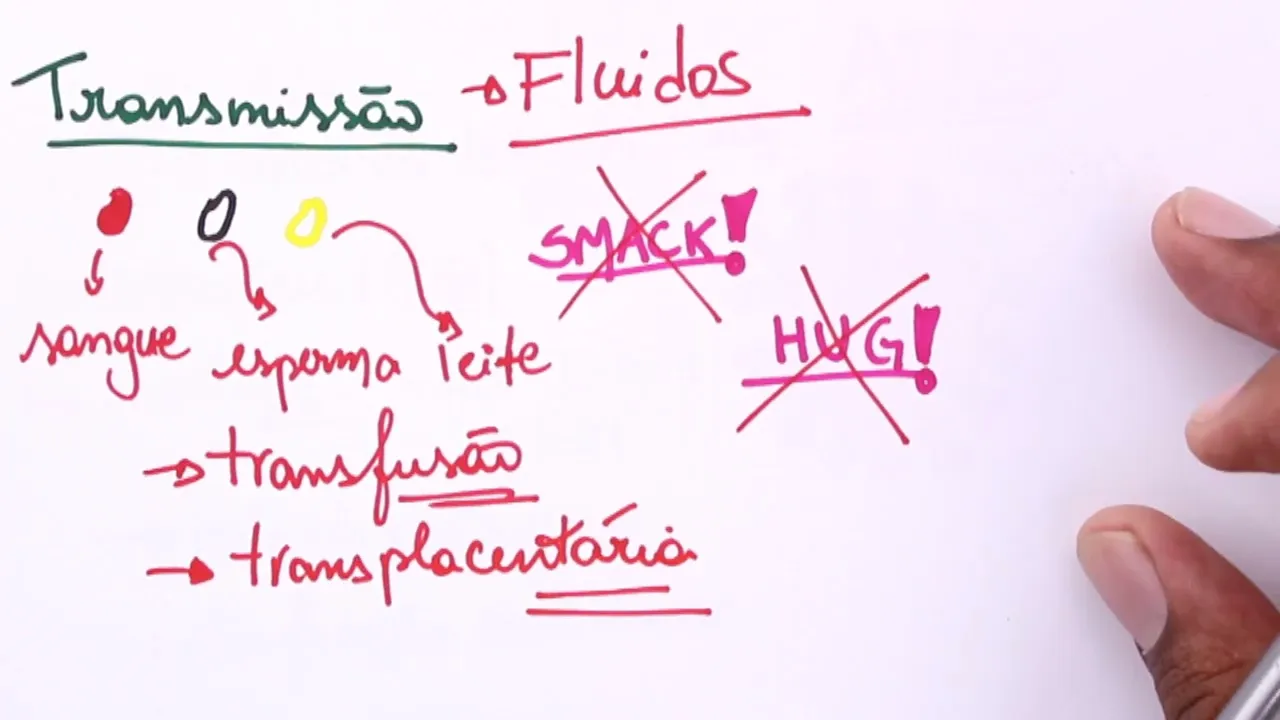 Transmissão → Fluidos
SMACK!
HUG!
sangue esperma leite
→ transfusão
→ transplacentária